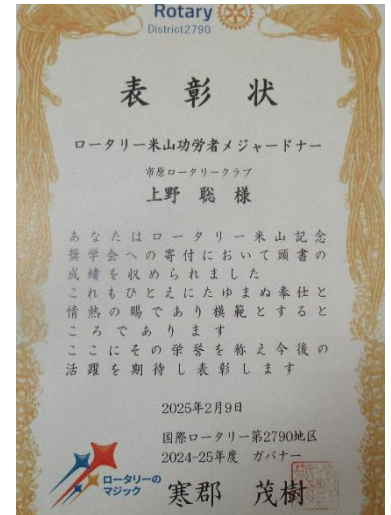 Rotary
District2790
表彰状
ロータリー米山功労者メジャードナー
市原ロータリークラブ
上野 聡 様
あなたはロータリー米山記念
奨学会への寄付において頭書の
成績を収められました
これもひとえにたゆまぬ奉仕と
情熱の賜であり模範とすると
ころであります
ここにその栄誉を称え今後の
活躍を期待し表彰します
2025年2月9日
国際ロータリー第2790地区
2024-25年度 ガバナー
寒郡 茂樹
ロータリーの
マジック